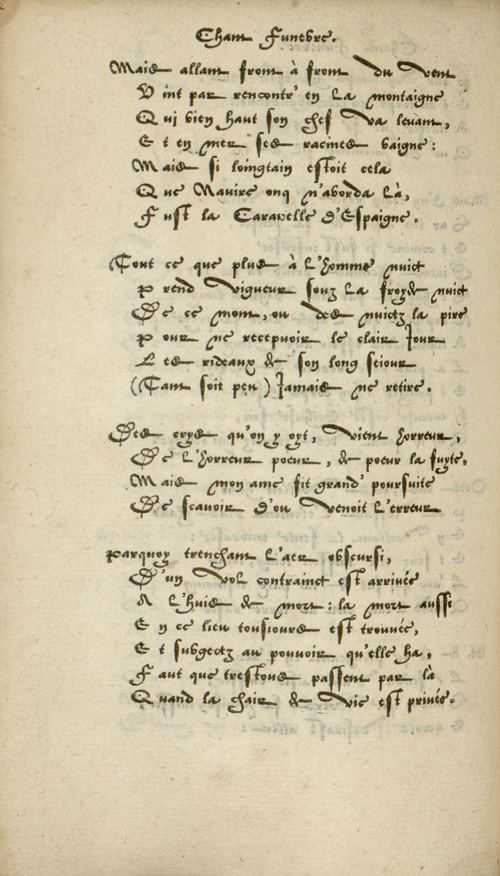 Chant Funebre.
Mais allant front à front du vent
Vint par rencontr' en la montaigne
Qui bien haut son chef va levant,
Et en mer ses racines baigne:
Mais si loingtain estoit cela
Que Navire onq n'aborda là,
Fust la Caravelle d'Espaigne.
Tout ce que plus à l'homme nuict
Prend vigueur souz la froyde nuict
De ce mont, ou des nuictz la pire
Pour ne recepvoir le clair Jour
Les rideaux de son long sejour
(Tant soit peu) Jamais ne retire.
Des crys qu'on y oyt, vient horreur,
De l'horreur poeur, & poeur la fuyte,
Mais mon ame fit grand' poursuite
De scavoir d'ou venoit l'erreur
Parquoy trenchant l'aer obscursi,
D'un vol contrainct est arrivée
A l'huis de mort: la mort aussi
En ce lieu tousiours est trouvée,
Et subgectz au pouvoir qu'elle ha,
Faut que trestous passent par là
Quand la chair de vie est privée.